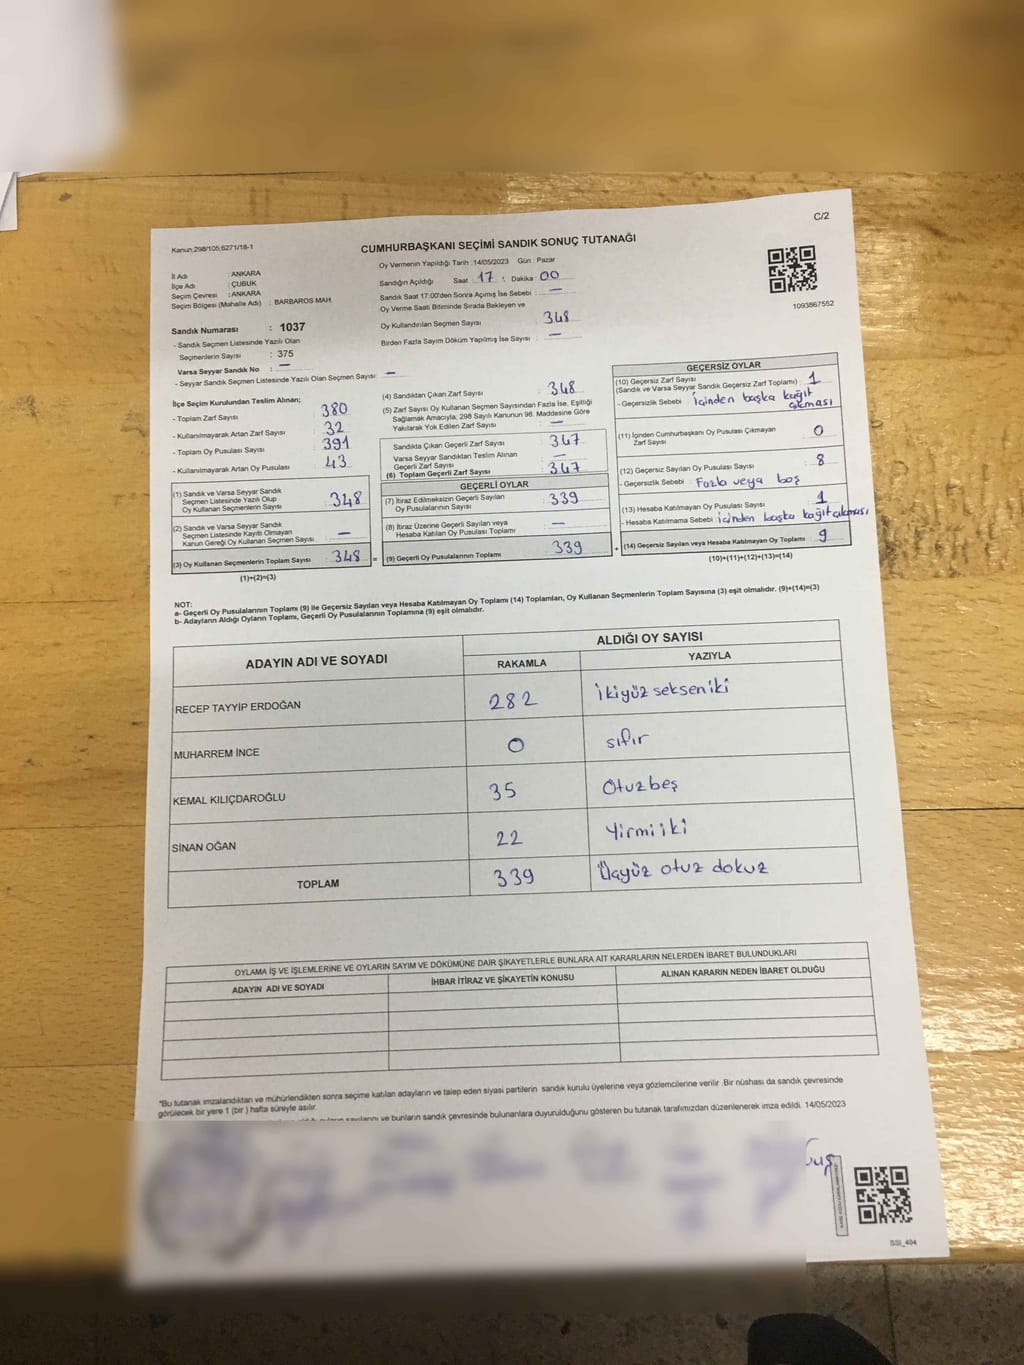 C/2
Kanun:298/105;6271/18-1
CUMHURBAŞKANI SEÇİMİ SANDIK SONUÇ TUTANAĞI
İl Adı : ANKARA
İlçe Adı : ÇUBUK
Seçim Çevresi : ANKARA
Seçim Bölgesi (Mahalle Adı) : BARBAROS MAH.
Sandık Numarası : 1037
- Sandık Seçmen Listesinde Yazılı Olan
Seçmenlerin Sayısı : 375
Varsa Seyyar Sandık No : —
- Seyyar Sandık Seçmen Listesinde Yazılı Olan Seçmen Sayısı: —
Oy Vermenin Yapıldığı Tarih :14/05/2023 Gün : Pazar
Sandığın Açıldığı Saat : 17 Dakika : 00
Sandık Saat 17:00'den Sonra Açımış İse Sebebi : —
Oy Verme Saati Bitiminde Sırada Bekleyen ve
Oy Kullandırılan Seçmen Sayısı : 348
Birden Fazla Sayım Döküm Yapılmış İse Sayısı : —
1093867552
İlçe Seçim Kurulundan Teslim Alınan;
- Toplam Zarf Sayısı : 380
- Kullanılmayarak Artan Zarf Sayısı : 32
- Toplam Oy Pusulası Sayısı : 391
- Kullanılmayarak Artan Oy Pusulası : 43
(1) Sandık ve Varsa Seyyar Sandık
Seçmen Listesinde Yazılı Olup
Oy Kullanan Seçmenlerin Sayısı : 348
(2) Sandık ve Varsa Seyyar Sandık
Seçmen Listesinde Kayıtlı Olmayan
Kanun Gereği Oy Kullanan Seçmen Sayısı : —
(3) Oy Kullanan Seçmenlerin Toplam Sayısı : 348 =
(1)+(2)=(3)
(4) Sandıktan Çıkan Zarf Sayısı : 348
(5) Zarf Sayısı Oy Kullanan Seçmen Sayısından Fazla İse, Eşitliği
Sağlamak Amacıyla; 298 Sayılı Kanunun 98. Maddesine Göre
Yakılarak Yok Edilen Zarf Sayısı : —
Sandıkta Çıkan Geçerli Zarf Sayısı : 347
Varsa Seyyar Sandıktan Teslim Alınan
Geçerli Zarf Sayısı : —
(6) Toplam Geçerli Zarf Sayısı : 347
GEÇERLİ OYLAR
(7) İtiraz Edilmeksizin Geçerli Sayılan
Oy Pusulalarının Sayısı : 339
(8) İtiraz Üzerine Geçerli Sayılan veya
Hesaba Katılan Oy Pusulası Toplamı : —
(9) Geçerli Oy Pusulalarının Toplamı : 339 +
GEÇERSİZ OYLAR
(10) Geçersiz Zarf Sayısı
(Sandık ve Varsa Seyyar Sandık Geçersiz Zarf Toplamı) : 1
- Geçersizlik Sebebi : İçinden başka kağıt
çıkması
(11) İçinden Cumhurbaşkanı Oy Pusulası Çıkmayan
Zarf Sayısı : 0
(12) Geçersiz Sayılan Oy Pusulası Sayısı : 8
- Geçersizlik Sebebi : Fazla veya boş
(13) Hesaba Katılmayan Oy Pusulası Sayısı : 1
- Hesaba Katılmama Sebebi : içinden başka kağıt çıkması
(14) Geçersiz Sayılan veya Hesaba Katılmayan Oy Toplamı : 9
(10)+(11)+(12)+(13)=(14)
NOT:
a- Geçerli Oy Pusulalarının Toplamı (9) ile Geçersiz Sayılan veya Hesaba Katılmayan Oy Toplamı (14) Toplamları, Oy Kullanan Seçmenlerin Toplam Sayısına (3) eşit olmalıdır. (9)+(14)=(3)
b- Adayların Aldığı Oyların Toplamı, Geçerli Oy Pusulalarının Toplamına (9) eşit olmalıdır.
ADAYIN ADI VE SOYADI
ALDIĞI OY SAYISI
RAKAMLA YAZIYLA
RECEP TAYYİP ERDOĞAN 282 İkiyüz sekseniki
MUHARREM İNCE 0 sıfır
KEMAL KILIÇDAROĞLU 35 Otuzbeş
SİNAN OĞAN 22 Yirmiiki
TOPLAM 339 Üçyüz otuz dokuz
OYLAMA İŞ VE İŞLEMLERİNE VE OYLARIN SAYIM VE DÖKÜMÜNE DAİR ŞİKAYETLERLE BUNLARA AİT KARARLARIN NELERDEN İBARET BULUNDUKLARI
ADAYIN ADI VE SOYADI İHBAR İTİRAZ VE ŞİKAYETİN KONUSU ALINAN KARARIN NEDEN İBARET OLDUĞU
*Bu tutanak imzalandıktan ve mühürlendikten sonra seçime katılan adayların ve talep eden siyasi partilerin sandık kurulu üyelerine veya gözlemcilerine verilir. Bir nüshası da sandık çevresinde
görülecek bir yere 1 (bir ) hafta süreyle asılır.
sayılarını ve bunların sandık çevresinde bulunanlara duyurulduğunu gösteren bu tutanak tarafımızdan düzenlenerek imza edildi. 14/05/2023
SSI_404